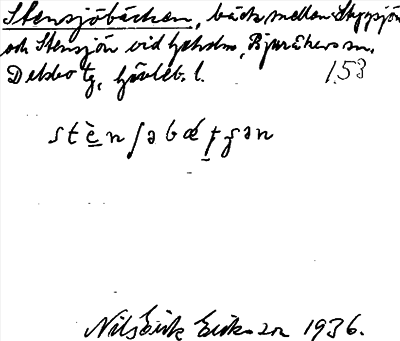 Stensjöbäcken, bäck mellan Skyssjön
och Stensjön vid Hjåholm, Bjuråkers sn,
Delsbo tg, Gävleb. l. 1.53
stènʃəbæ̀tʂən
Nils Erik Eriksson 1936.